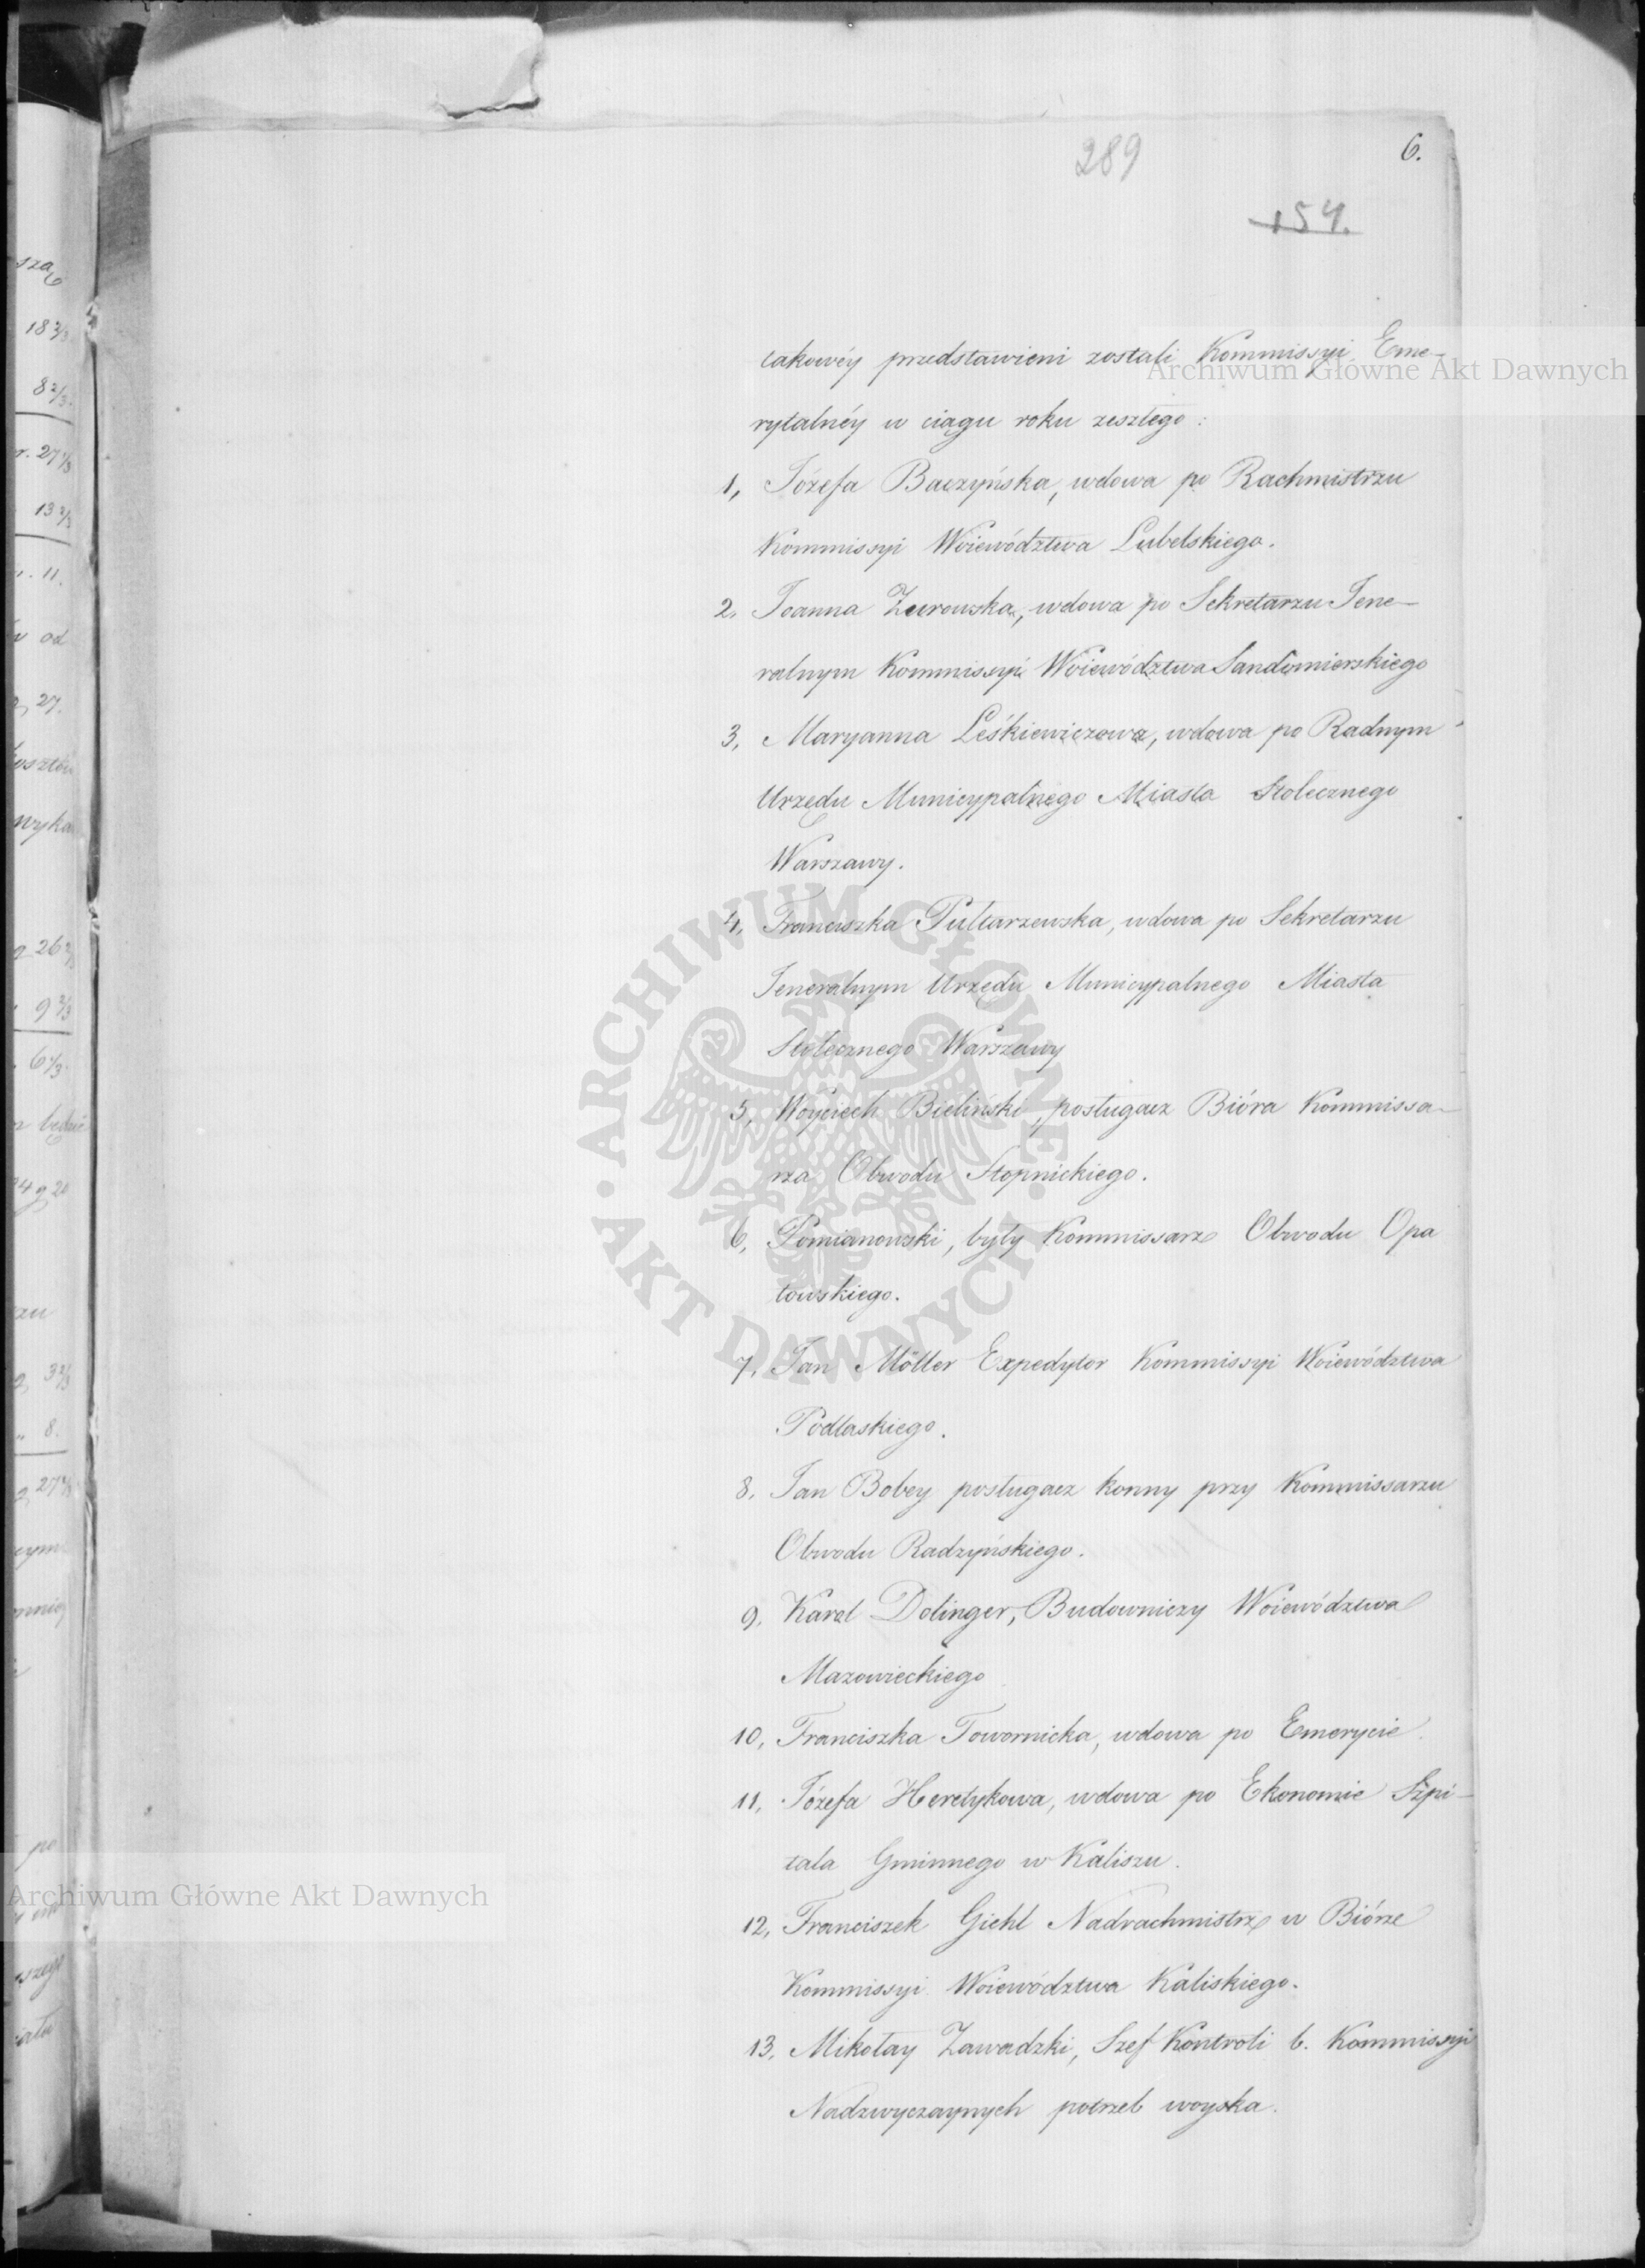 289
6.
154.
takowéy przedstawieni zostali Kommissyi Eme-
rytalnéy w ciągu roku zeszłego:
1, Józefa Baczyńska, wdowa po Rachmistrzu
Kommissyi Woiewództwa Lubelskiego.
2, Joanna Żurowska, wdowa po Sekretarzu Jene-
ralnym Kommissyi Woiewództwa Sandomierskiego
3, Maryanna Leśkiewiczowa, wdowa po Radnym
Urzędu Municypalnego Miasta Stołecznego
Warszawy.
4, Franciszka Pułtarzewska, wdowa po Sekretarzu
Jeneralnym Urzędu Municypalnego Miasta
Stołecznego Warszawy
5, Woyciech Bieliński, posługacz Bióra Kommissa-
rza Obwodu Stopnickiego.
6, Pomianowski, były Kommissarz Obwodu Opa
towskiego.
7, Jan Möller Expedytor Kommissyi Woiewództwa
Podlaskiego.
8, Jan Bobey posługacz konny przy Kommissarzu
Obwodu Radzyńskiego.
9, Karol Dolinger, Budowniczy Woiewództwa
Mazowieckiego
10, Franciszka Towornicka, wdowa po Emerycie.
11, Józefa Heretykowa, wdowa po Ekonomie Szpi-
tala Gminnego w Kaliszu.
12, Franciszek Giehl Nadrachmistrz w Biórze
Kommissyi Woiewództwa Kaliskiego.
13, Mikołay Zawadzki, Szef Kontroli b. Kommissyi
Nadzwyczaynych potrzeb woyska.
Archiwum Główne Akt Dawnych
ARCHIWUM GŁÓWNE AKT DAWNYCH
Archiwum Główne Akt Dawnych